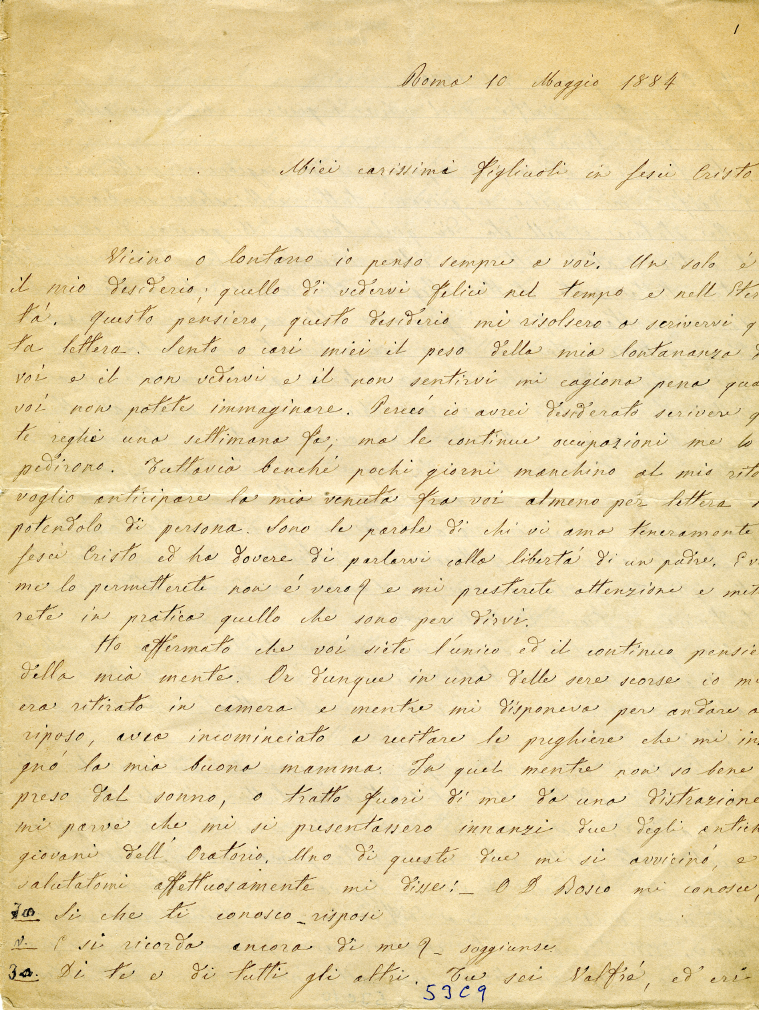 1
Roma 10 Maggio 1884
Miei carissimi figliuoli in Gesù Cristo
Vicino o lontano io penso sempre a voi. Un solo è
il mio desiderio; quello di vedervi felici nel tempo e nell'Eter
tá. Questo pensiero, questo desiderio mi risolsero a scrivervi q
ta lettera. Sento o cari miei il peso della mia lontananza d
voi e il non vedervi e il non sentirvi mi cagiona pena qua
voi non potete immaginare. Perció io avrei desiderato scrivere q
te righe una settimana fa, ma le continue occupazioni me lo
pedirono. Tuttavia benché pochi giorni manchino al mio rito
voglio anticipare la mia venuta fra voi almeno per lettera
potendolo di persona. Sono le parole di chi vi ama teneramente
Gesù Cristo ed ha dovere di parlarvi colla libertá di un padre. E v
me lo permetterete non é vero? e mi presterete attenzione e met
rete in pratica quello che sono per dirvi.
Ho affermato che voi siete l'unico ed il continuo pensie
della mia mente. Or dunque in una delle sere scorse io m
era ritirato in camera e mentre mi disponeva per andare a
riposo, avea incominciato a recitare le preghiere che mi in
gnó la mia buona mamma. In quel mentre non so bene
preso dal sonno, o tratto fuori di me da una distrazione
mi parve che mi si presentassero innanzi due degli antich
giovani dell'Oratorio. Uno di questi due mi si avvicinó, e
salutatomi affettuosamente mi disse: _ O D Bosco mi conosce,
Si che ti conosco _ risposi
E si ricorda ancora di me? _ soggiunse
Di te e di tutti gli altri. Tu sei Valfré, ed eri
53C9